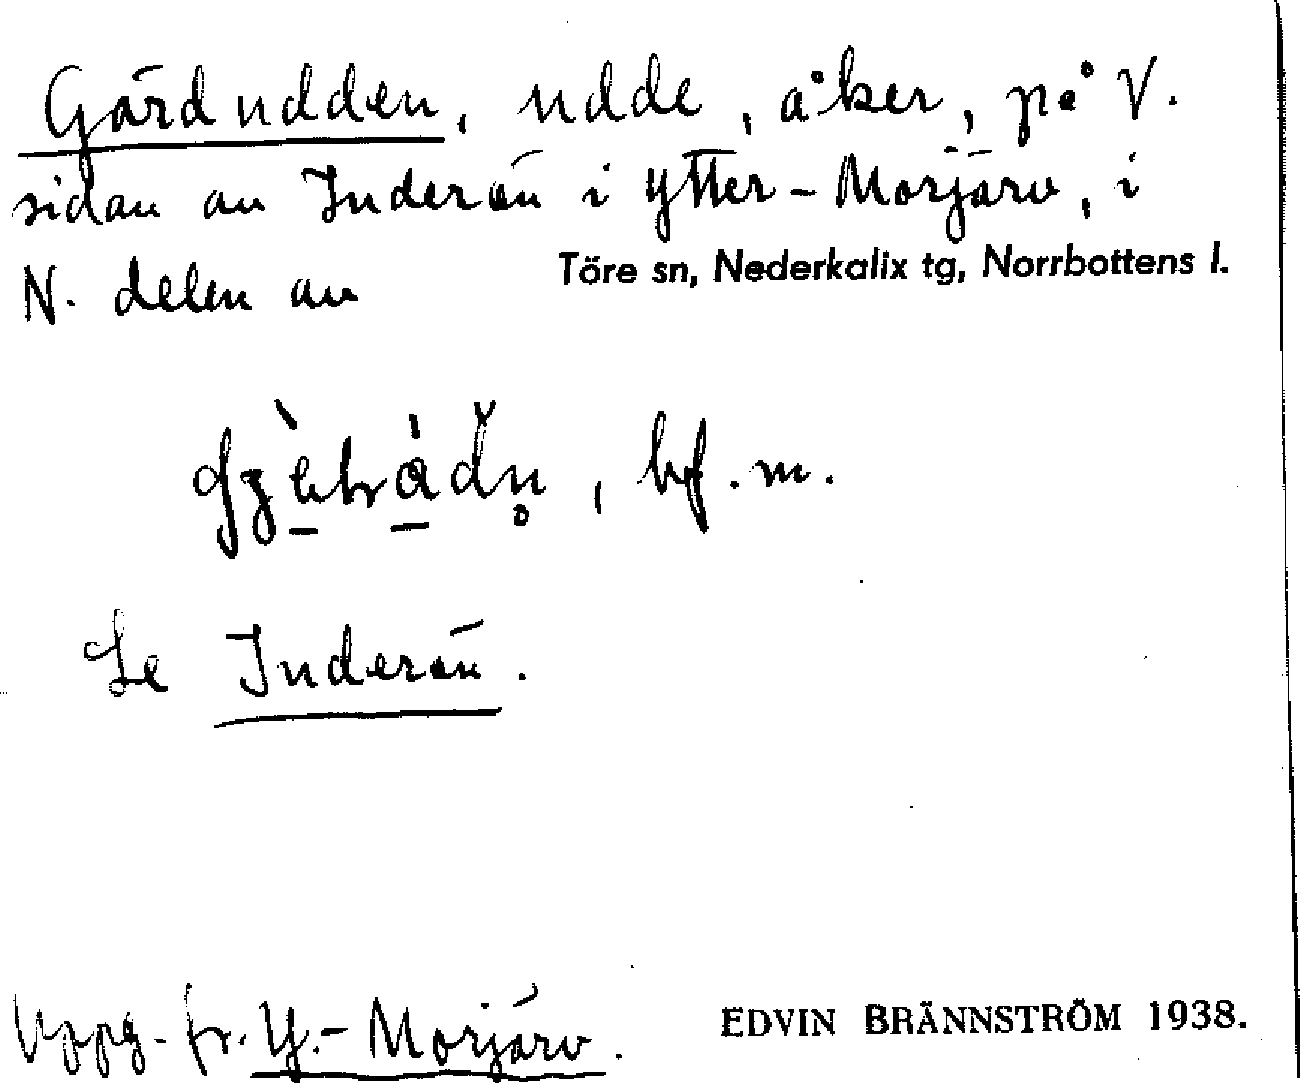 Gärdudden, udde, åker, på V.
sidan av Inderön i Ytter-Morjärv, i
N. delen av Töre sn, Nederkalix tg, Norrbottens l.
bf. m.
Se Inderön.
Uppg. fr. Y.-Morjärv. EDVIN BRÄNNSTRÖM 1938.